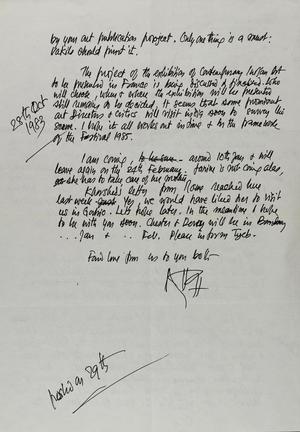 by your art publication project. Only one thing is a must:
Vakils should print it.
The project of the exhibition of Contemporary Indian Art
to be presented in France is being discussed & finalised. Who
will choose, when & where the exhibition will be presented
still remains to be decided, it seems that some prominent
Art Directors & Critics will visit India soon to survey the
scene. I hope it all works out in time & in the framework
of the Festival 1985.
28th Oct
1983
I am coming, around 10th Jan & will
leave again on the 24th February. Janine is not coming alas,
as she has to take care of her mother.
Khorshed's letter from Rome reached her
last week. Yes, we would have liked her to visit
us in Gorbio. Let this later. In the meantime I hope
to be with you soon. Chester & Davey will be in Bombay
... Jan & ... Feb. Please inform Tyeb.
Fond love from us to you both.
posted on 29th